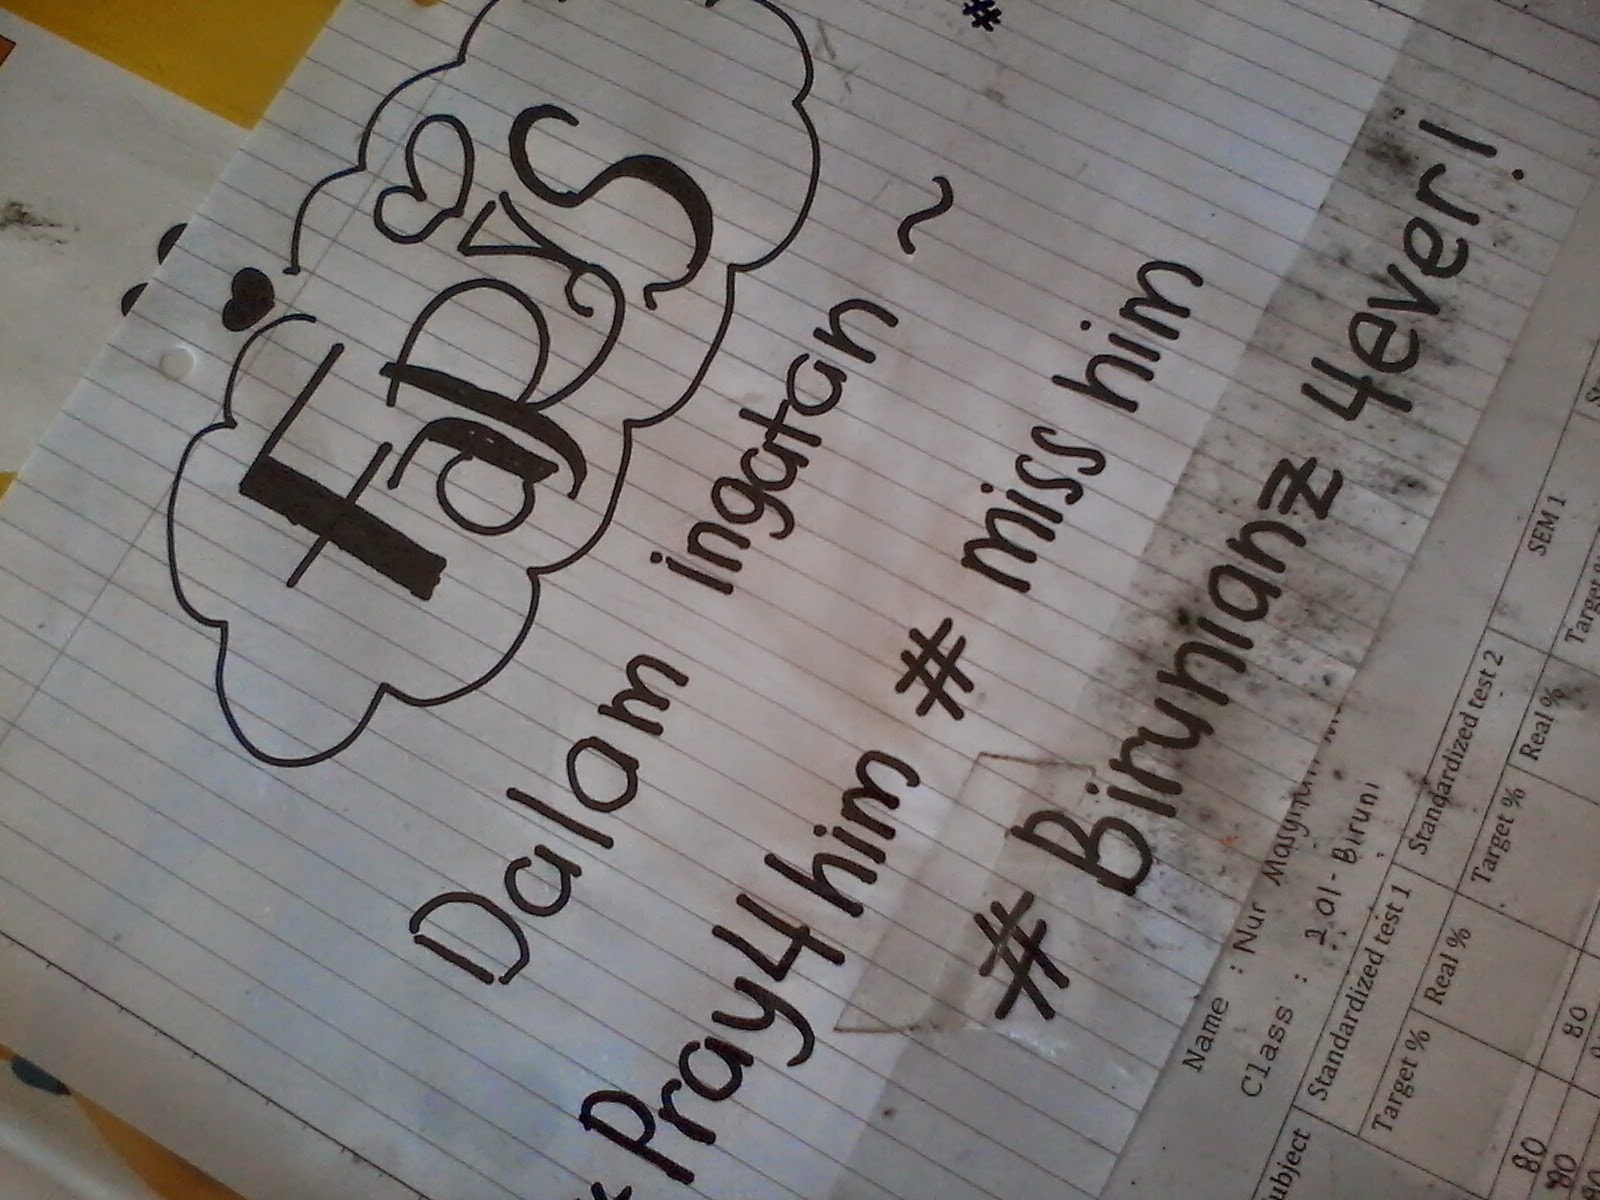 #
FaRiS
Dalam ingatan ~
# Pray4 him # miss him
# Birunianz 4ever!
Name : Nur
Class : 2 al-Biruni
Standardized test 1 Standardized test 2 SEM 1
Target % Real % Target % Real % Target %
80 80
80